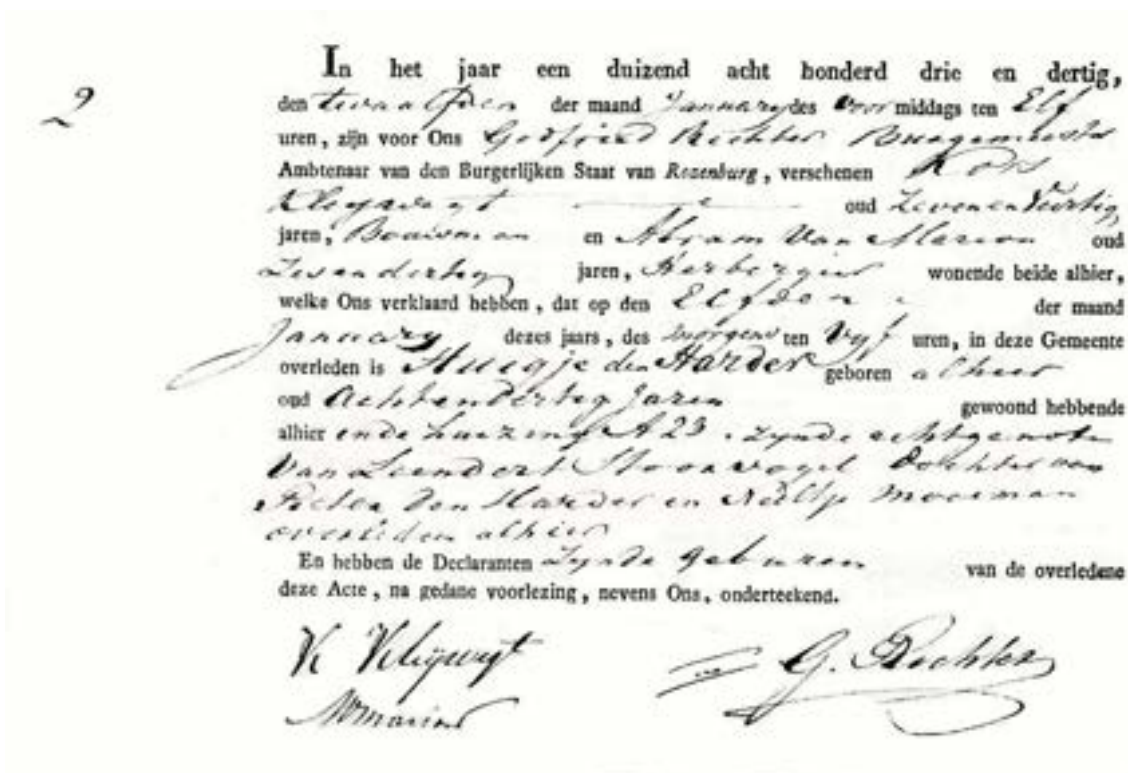 2
In het jaar een duizend acht honderd drie en dertig,
den twaalfden der maand January des voor middags ten Elf
uren, zijn voor Ons Godfried Rechter Burgemeester
Ambtenaar van den Burgerlijken Staat van Rozenburg, verschenen
Kleywegt oud Zevenenveertig
jaren, Bouwman en Abram Van Marion oud
Zesendertig jaren, Herbergier wonende beide alhier,
welke Ons verklaard hebben, dat op den Elfden der maand
January dezes jaars, des morgens ten Vyf uren, in deze Gemeente
overleden is Huegje den Harder geboren alhier
oud Achtendertig Jaren gewoond hebbende
alhier in de huizing A 23. zynde echtgenote
Van Leendert Hoonvogel Dochter van
Pieter Den Harder en Neeltje Mooiman
overleden alhier
En hebben de Declaranten Zynde geburen van de overledene
deze Acte, na gedane voorlezing, nevens Ons, onderteekend.
K Kleijwegt G. Rechter